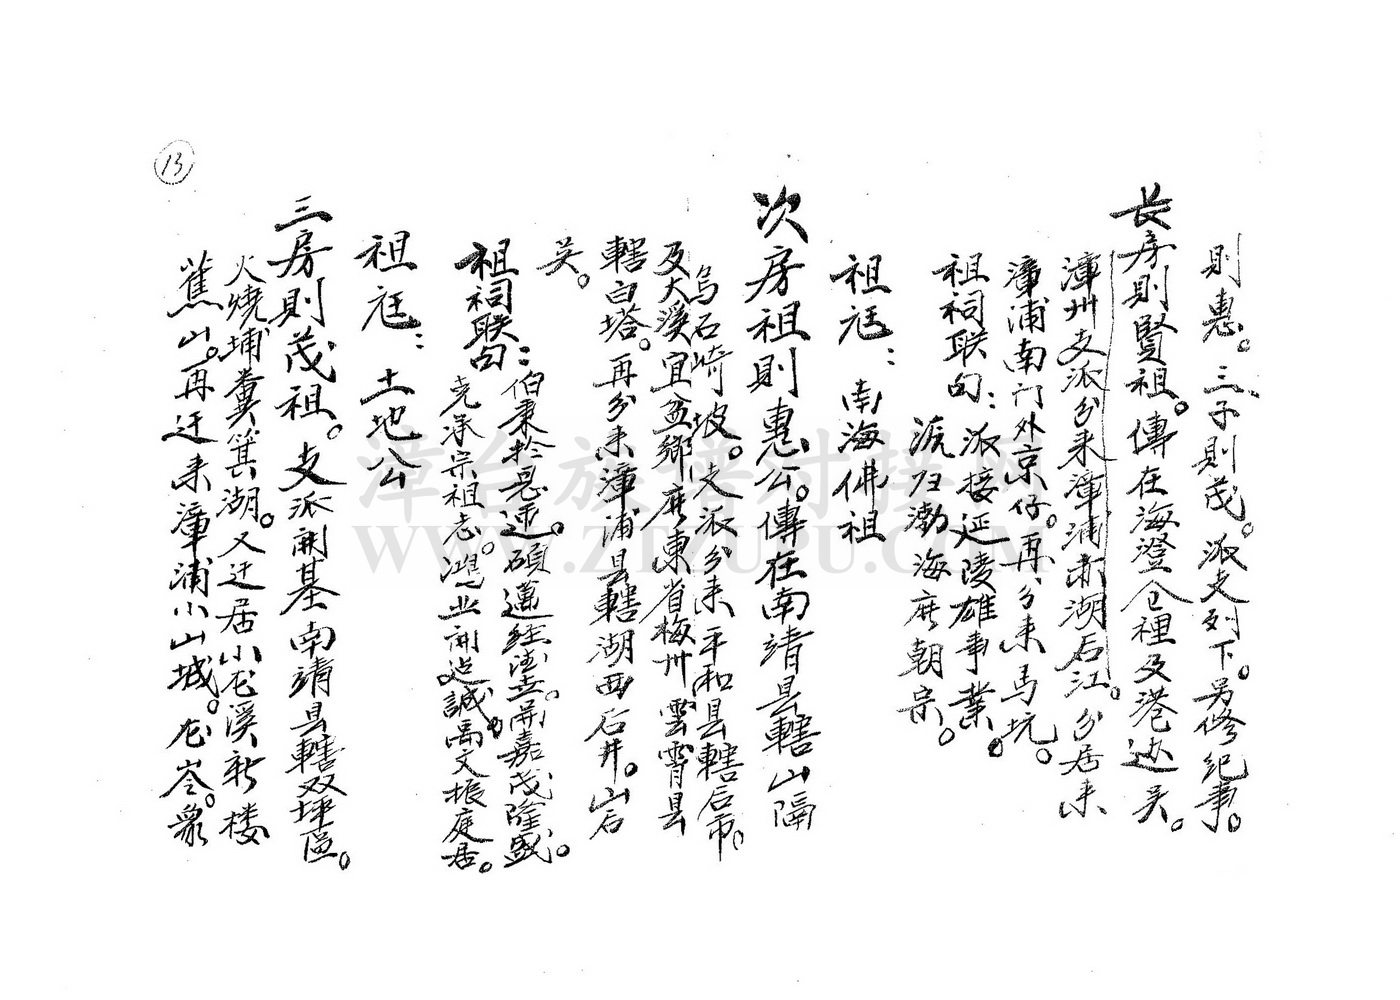 則惠。三子則茂。派支列下。另修纪事。
長房則賢祖。傳在海澄仓裡及港边吴。
漳州支派分来漳浦赤湖后江。分居来
漳浦南门外京仔。再分来马坑。
祖祠联句：派接延陵雄事業。
派归渤海庶朝宗。
祖 ：南海佛祖
次房祖則惠公。傳在南靖县轄山隔
乌石崎坡。支派分来平和县轄后市。
及大溪宜盆鄉广東省梅州雲霄县
轄白塔。再分来漳浦县轄湖西石井。山后
吴。
祖祠联句：伯秉 恩 碩邁经 。開嘉茂隆盛。
克承宗祖志。鴻业開 誠 文振庭居。
祖 ：土地公
三房則茂祖。支派開基南靖县轄双坪區。
火燒埔糞箕湖。又迁居小龙溪新楼
蕉山。再迁来漳浦小山城。龙岺。眾
13
漳台族谱对接网
WWW.ZTZUPU.COM